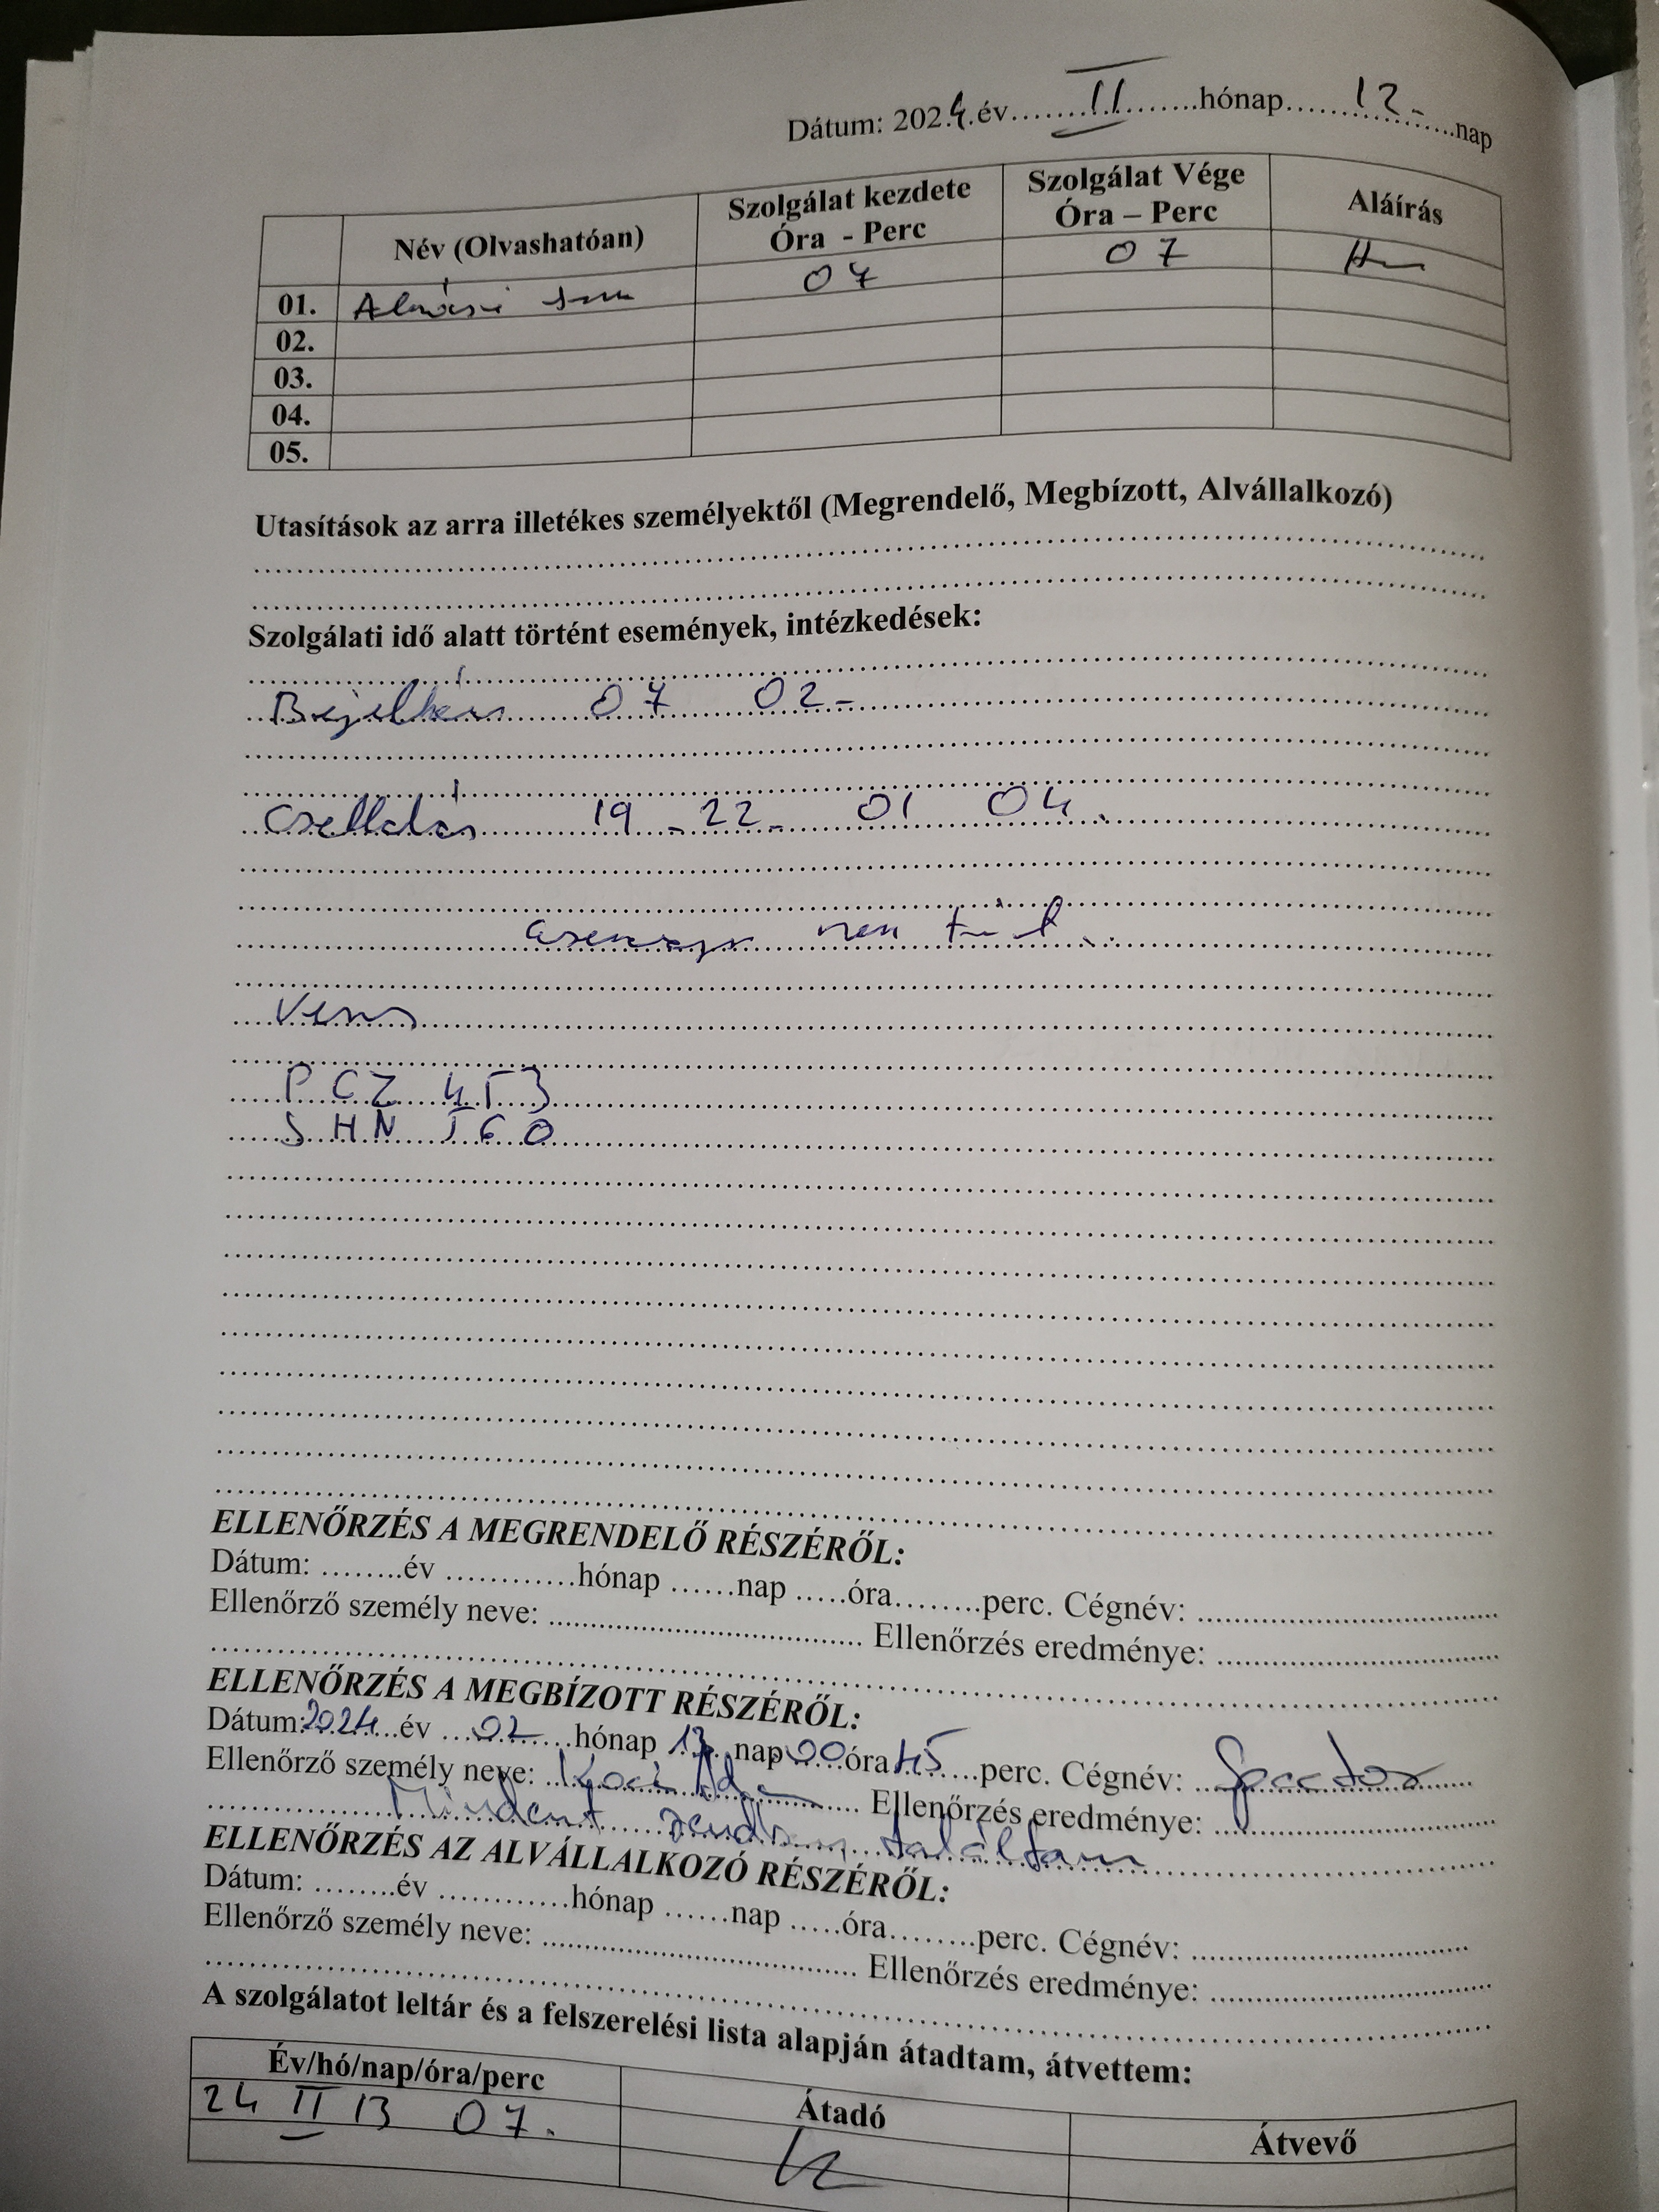 Dátum: 2024.év........II........hónap......12-.....nap
Név (Olvashatóan) Szolgálat kezdete Óra - Perc Szolgálat Vége Óra – Perc Aláírás
01. Almási 07 07
02.
03.
04.
05.
Utasítások az arra illetékes személyektől (Megrendelő, Megbízott, Alvállalkozó)
Szolgálati idő alatt történt események, intézkedések:
07 02-
19 - 22 - 01 04.
nem
P C Z 453
S H N 560
ELLENŐRZÉS A MEGRENDELŐ RÉSZÉRŐL:
Dátum: ........év ............hónap ......nap .....óra........perc. Cégnév: ..............................
Ellenőrző személy neve: ............................... Ellenőrzés eredménye: ............................
ELLENŐRZÉS A MEGBÍZOTT RÉSZÉRŐL:
Dátum: 2024 év 02 hónap 13. nap 00 óra 45 perc. Cégnév:
Ellenőrző személy neve: Ellenőrzés eredménye:
Mindent rendben találtam
ELLENŐRZÉS AZ ALVÁLLALKOZÓ RÉSZÉRŐL:
Dátum: ........év ............hónap ......nap .....óra........perc. Cégnév: ............................
Ellenőrző személy neve: ............................... Ellenőrzés eredménye: ............................
A szolgálatot leltár és a felszerelési lista alapján átadtam, átvettem:
Év/hó/nap/óra/perc Átadó Átvevő
24 II 13 07.